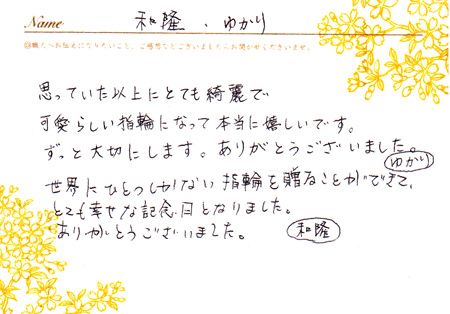 Name 和隆、ゆかり
◎職人へお伝えになりたいこと、ご感想などございましたらお聞かせくださいませ。
思っていた以上にとても綺麗で
可愛らしい指輪になって本当に嬉しいです。
ずっと大切にします。ありがとうございました。
ゆかり
世界にひとつしかない指輪を贈ることができて、
とても幸せな記念日となりました。
ありがとうございました。 和隆